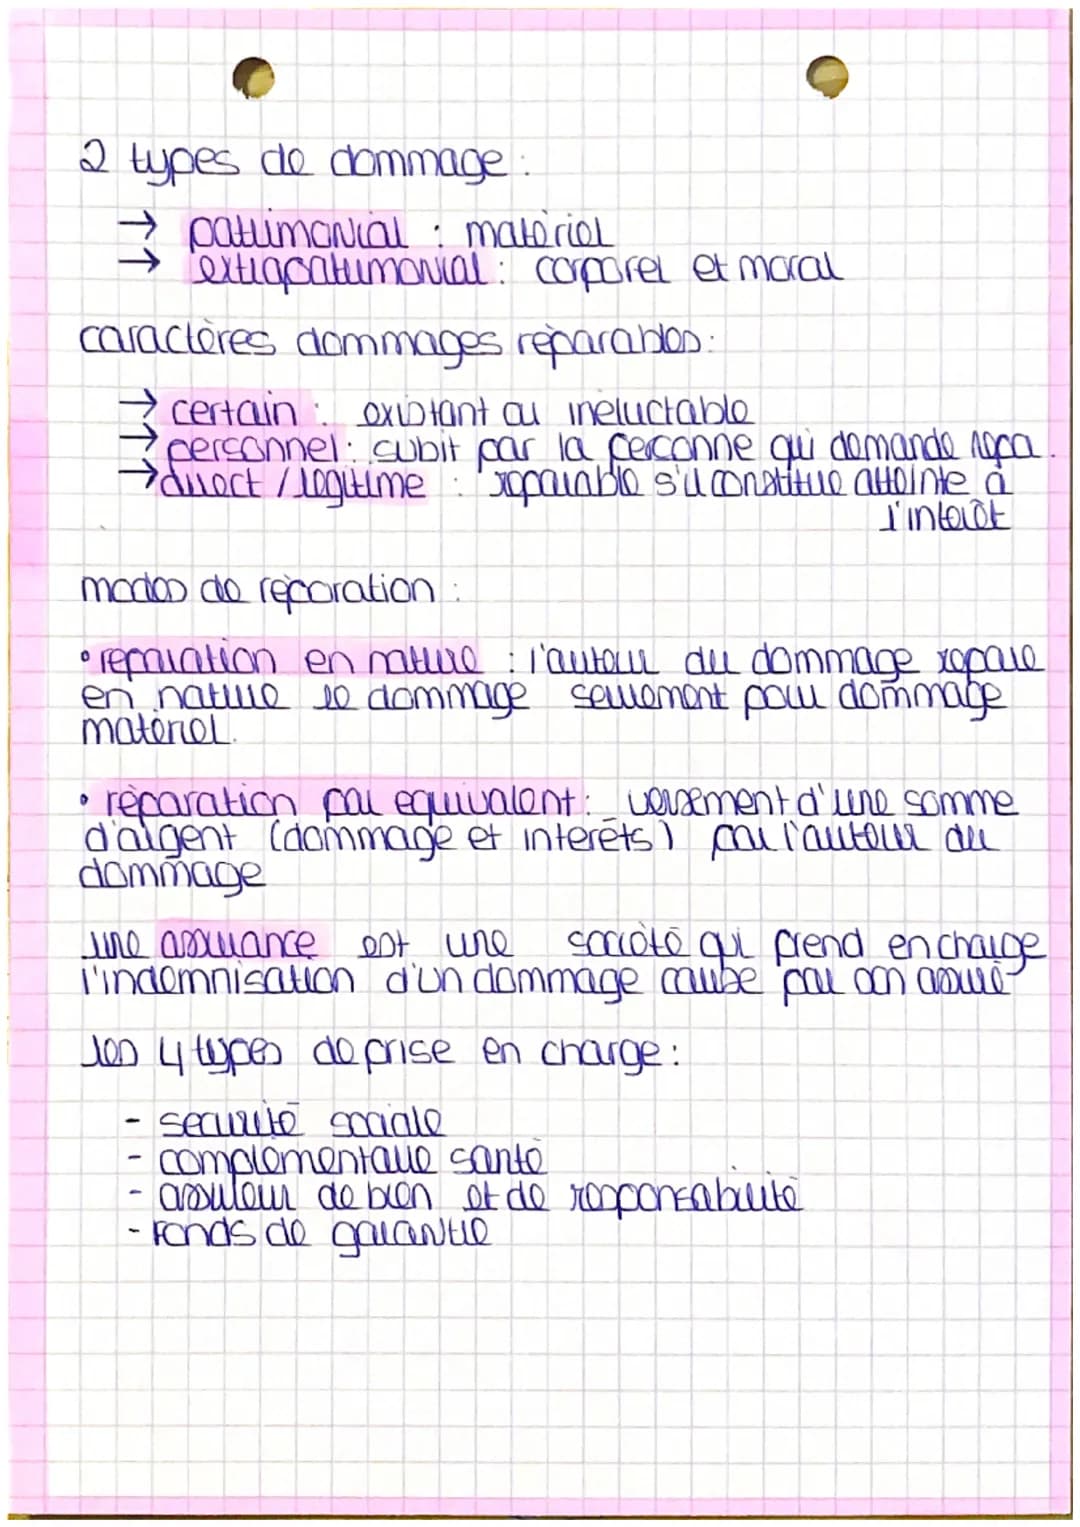 2 types de dommage :
→ patrimonial : matériel
→ extrapatrimonial : corporel et moral
caractères dommages réparables :
→ certain : existant ou inéluctable
→ personnel : subit par la personne qui demande répa.
→ direct / légitime : réparable s'il constitue atteinte à
l'intérêt
modes de réparation :
• réparation en nature : l'auteur du dommage répare
en nature le dommage seulement pour dommage
matériel.
• réparation par équivalent : versement d'une somme
d'argent (dommage et intérêts) par l'auteur du
dommage
une assurance est une société qui prend en charge
l'indemnisation d'un dommage causé par son assuré
les 4 types de prise en charge :
- sécurité sociale
- complémentaire santé
- assureur de bien et de responsabilité
- fonds de garantie